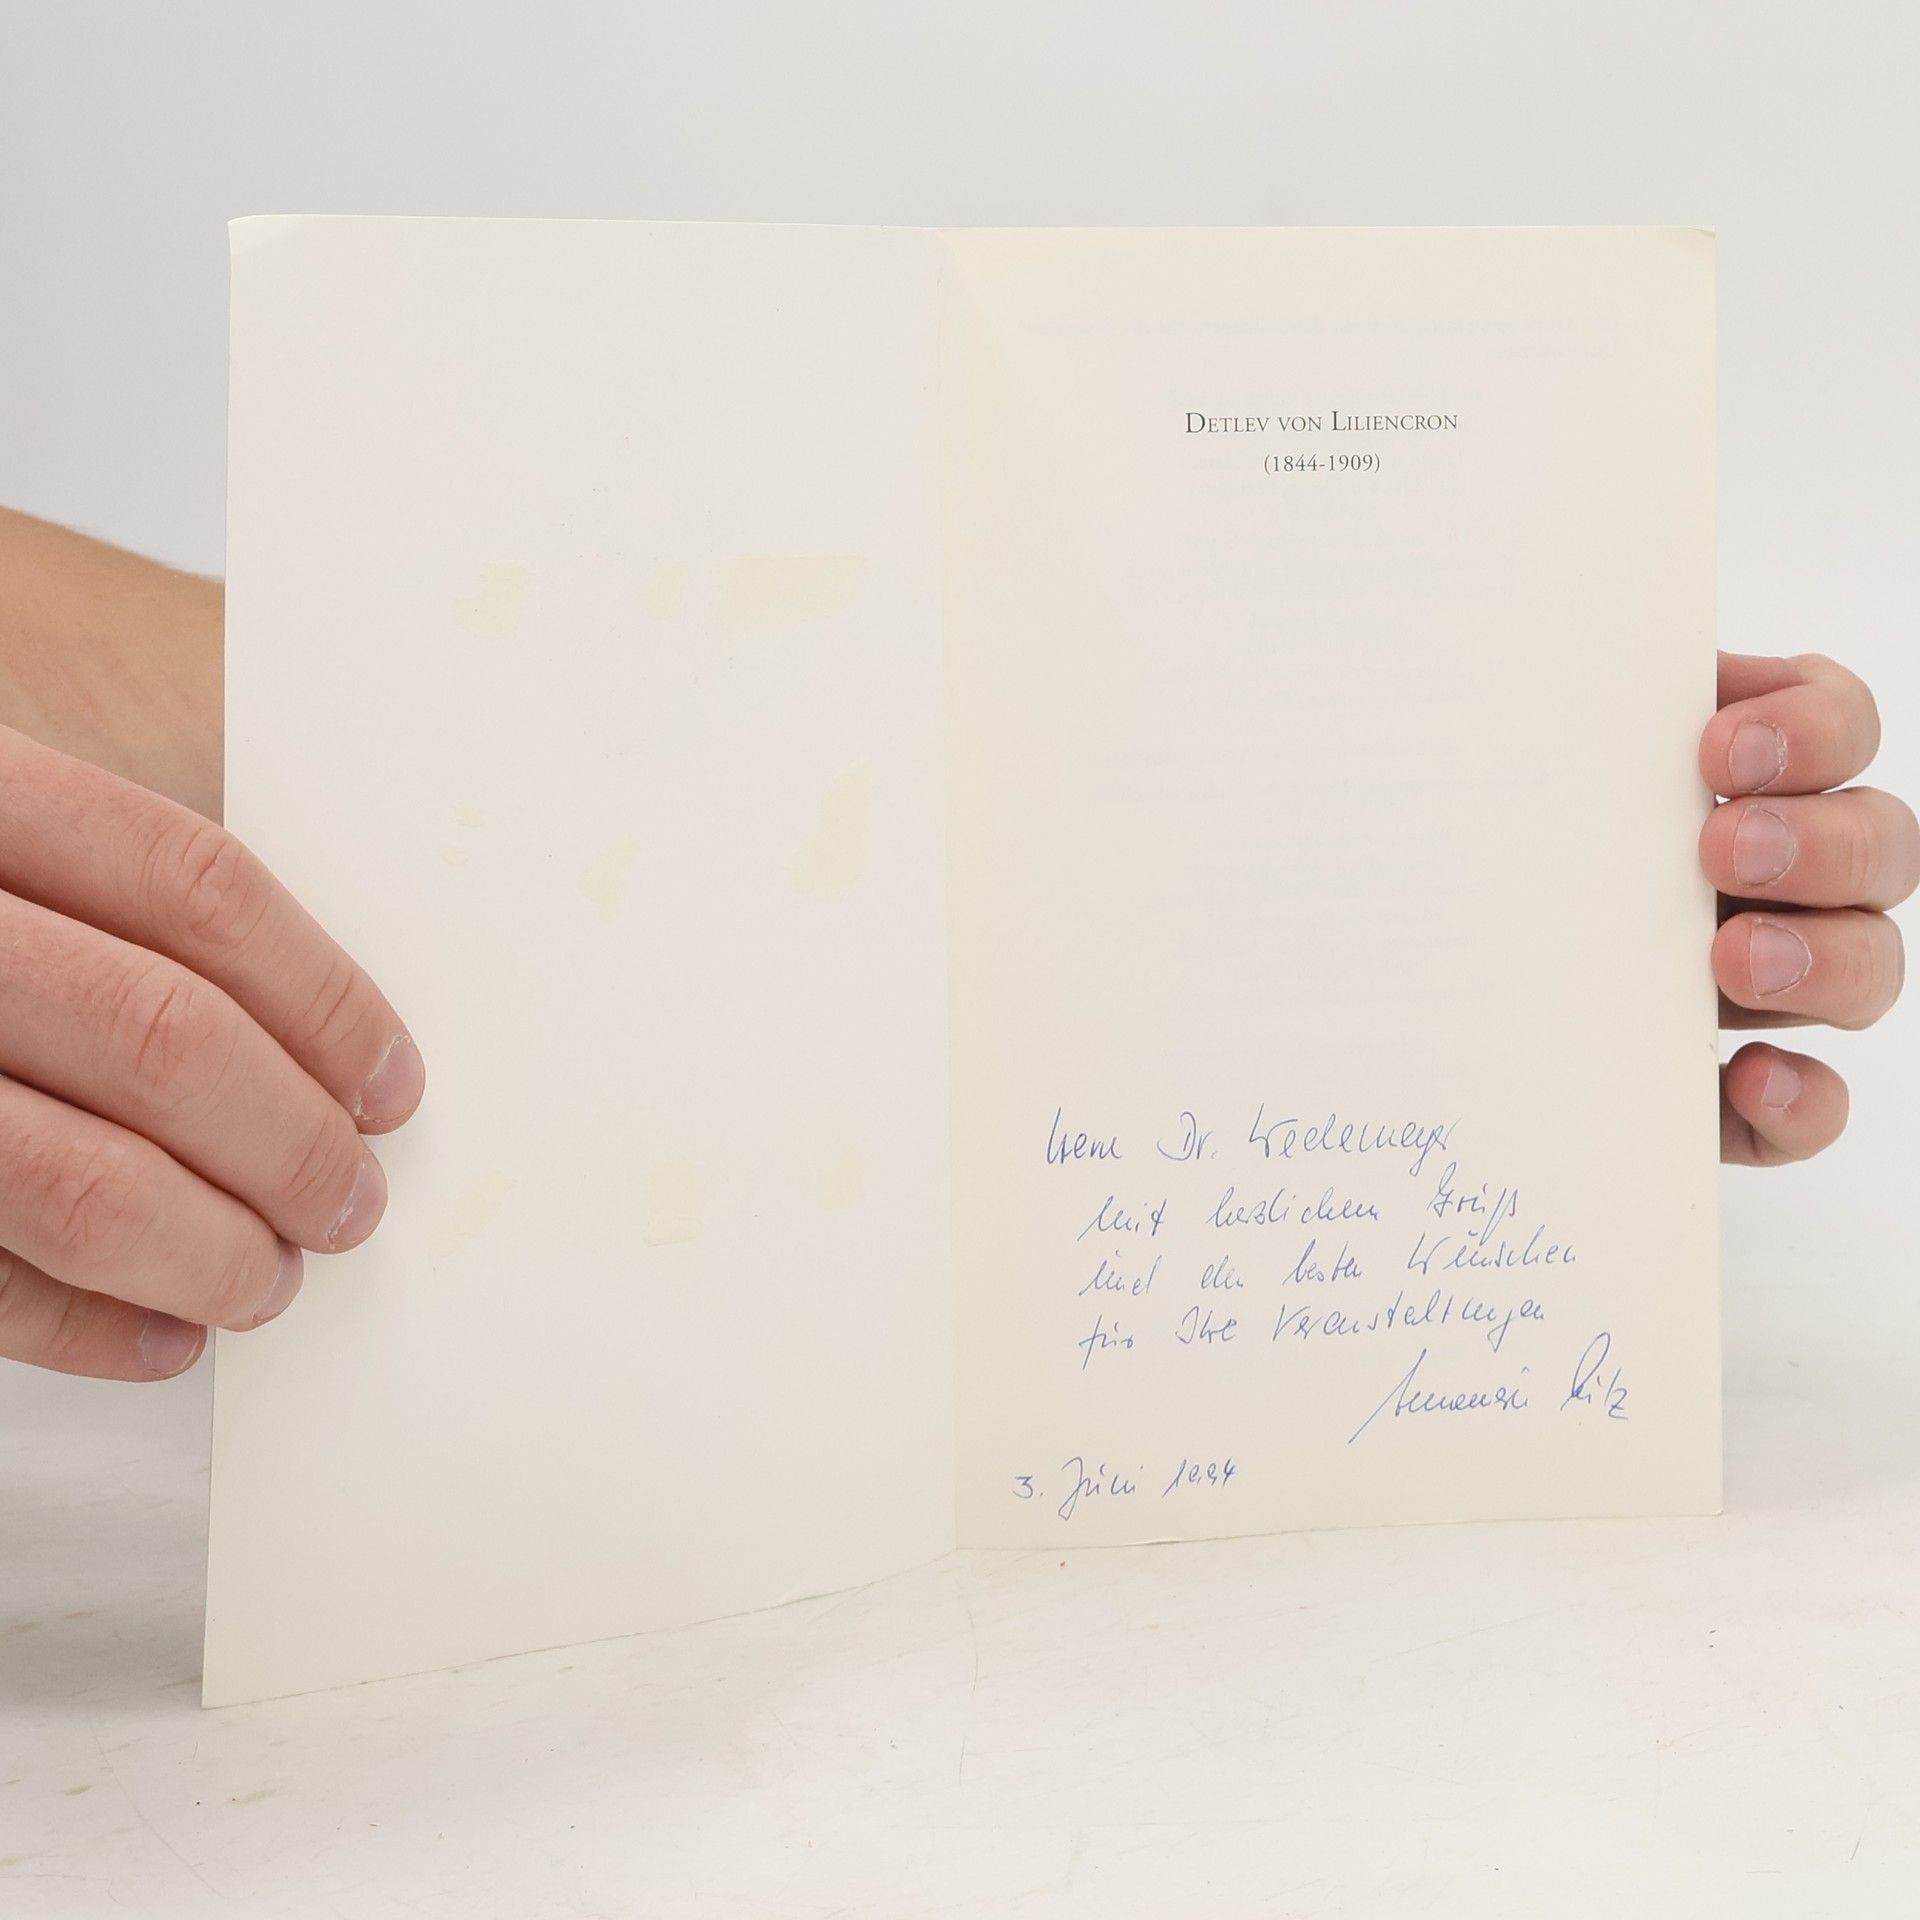 DETLEV VON LILIENCRON
(1844-1909)
Herrn Dr. Wedemeyer
mit herzlichem Gruß
und den besten Wünschen
für Ihre Veranstaltungen
3. Juni 1994